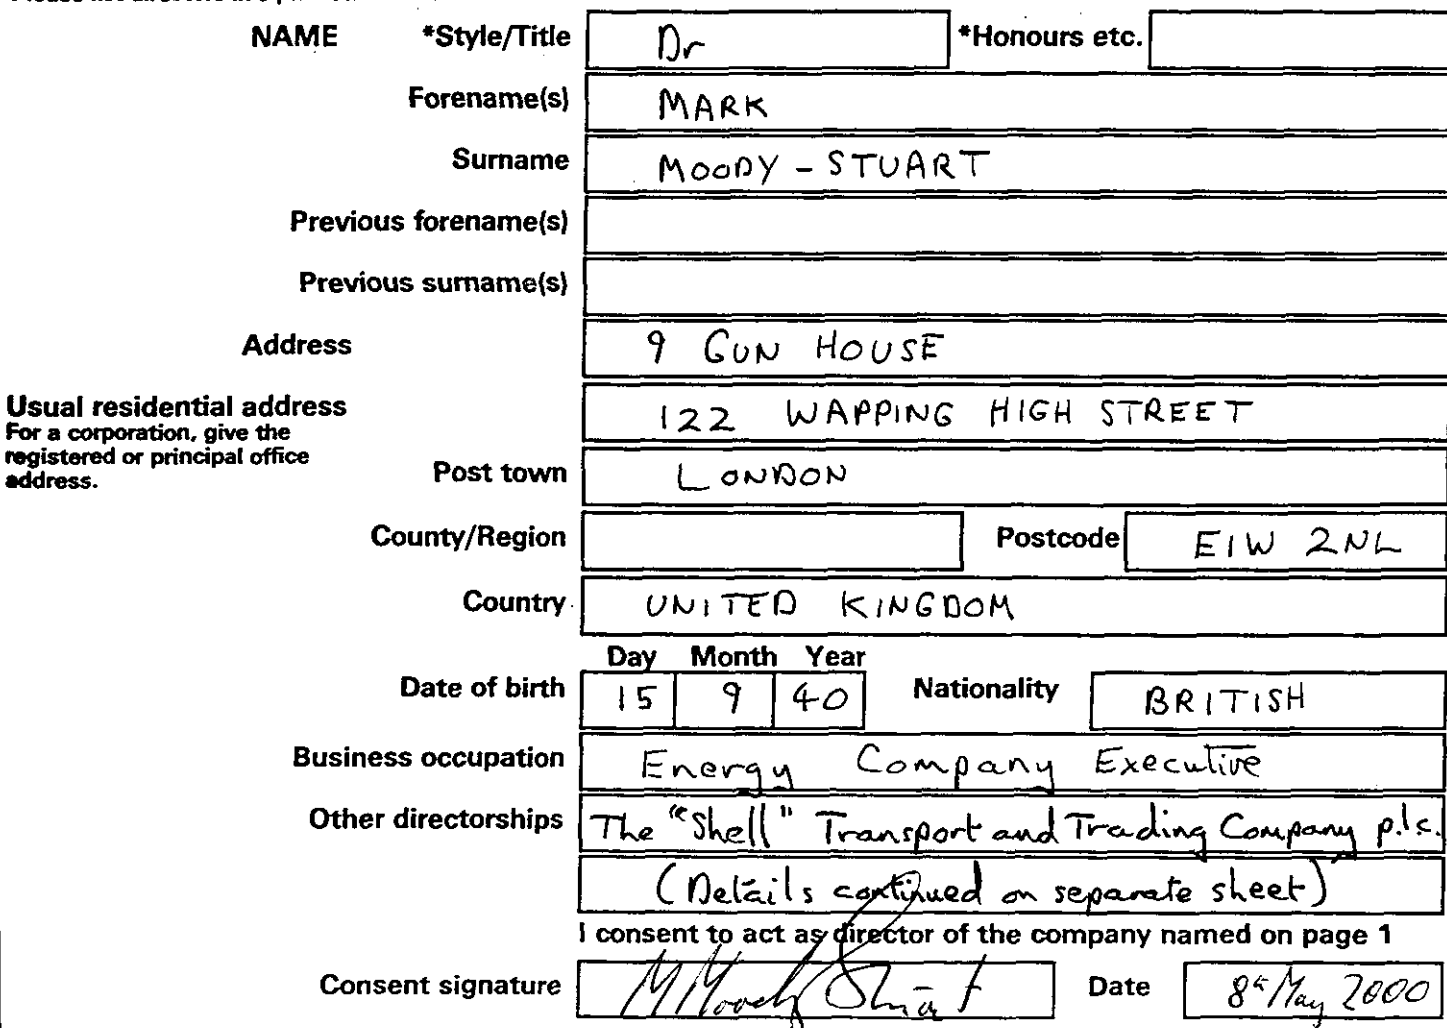 NAME *Style/Title Dr *Honours etc.
Forename(s) MARK
Surname MOODY - STUART
Previous forename(s)
Previous surname(s)
Address 9 GUN HOUSE
Usual residential address 122 WAPPING HIGH STREET
For a corporation, give the
registered or principal office
address.
Post town LONDON
County/Region Postcode E1W 2NL
Country UNITED KINGDOM
Day Month Year
Date of birth 15 9 40 Nationality BRITISH
Business occupation Energy Company Executive
Other directorships The "Shell" Transport and Trading Company p.l.c.
(Details continued on separate sheet)
I consent to act as director of the company named on page 1
Consent signature M Moody Stuart Date 8th May 2000